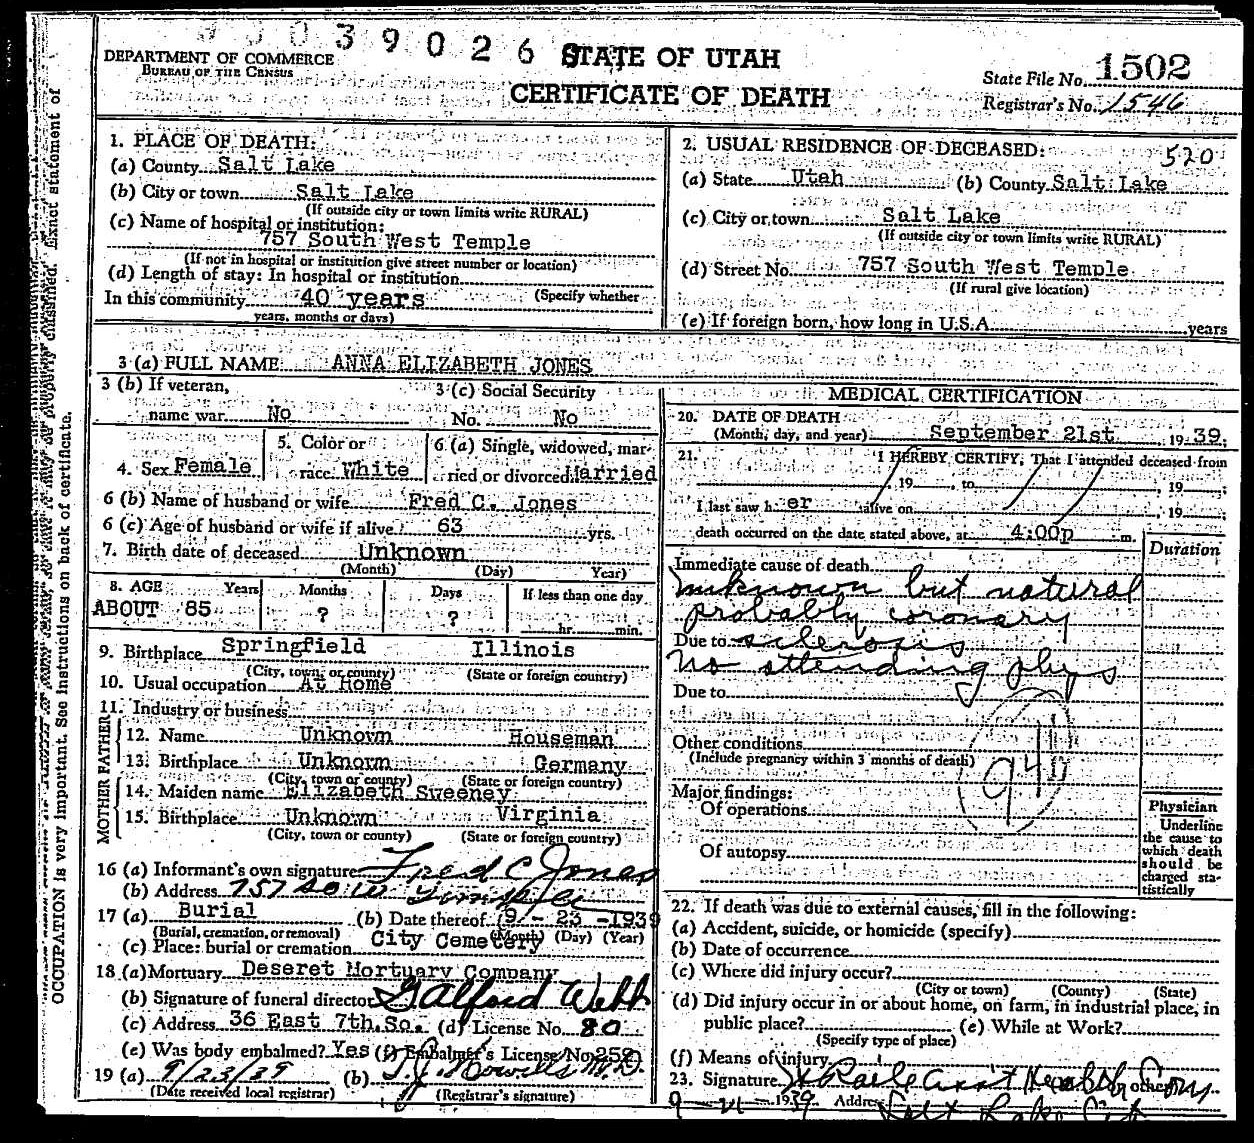 39026
STATE OF UTAH
CERTIFICATE OF DEATH
DEPARTMENT OF COMMERCE
BUREAU OF THE CENSUS
State File No. 1502
Registrar's No. 1546
1. PLACE OF DEATH:
(a) County Salt Lake
(b) City or town Salt Lake
(If outside city or town limits write RURAL)
(c) Name of hospital or institution:
757 South West Temple
(If not in hospital or institution give street number or location)
(d) Length of stay: In hospital or institution
In this community 40 years (Specify whether
years, months or days)
2. USUAL RESIDENCE OF DECEASED: 520
(a) State Utah (b) County Salt Lake
(c) City or town Salt Lake
(If outside city or town limits write RURAL)
(d) Street No. 757 South West Temple
(If rural give location)
(e) If foreign born, how long in U.S.A. years
3 (a) FULL NAME ANNA ELIZABETH JONES
3 (b) If veteran, 3 (c) Social Security
name war No No. No
4. Sex Female 5. Color or race White 6 (a) Single, widowed, married or divorced Married
6 (b) Name of husband or wife Fred C. Jones
6 (c) Age of husband or wife if alive 63 yrs.
7. Birth date of deceased Unknown
(Month) (Day) Year)
8. AGE Years Months Days If less than one day
ABOUT 85 ? ? hr. min.
9. Birthplace Springfield Illinois
(City, town, or county) (State or foreign country)
10. Usual occupation At Home
11. Industry or business
FATHER
12. Name Unknown Houseman
13. Birthplace Unknown Germany
(City, town or county) (State or foreign country)
MOTHER
14. Maiden name Elizabeth Sweeney
15. Birthplace Unknown Virginia
(City, town or county) (State or foreign country)
16 (a) Informant's own signature Fred C Jones
(b) Address 757 So. W Temple
17 (a) Burial (b) Date thereof 9 - 23 - 1939
(Burial, cremation, or removal) (Month) (Day) (Year)
(c) Place: burial or cremation City Cemetery
18 (a) Mortuary Deseret Mortuary Company
(b) Signature of funeral director Galford Webb
(c) Address 36 East 7th. So. (d) License No. 80
(e) Was body embalmed? Yes (f) Embalmer's License No. 252
19 (a) 9/23/39 (b) T. J. Howells M.D.
(Date received local registrar) (Registrar's signature)
MEDICAL CERTIFICATION
20. DATE OF DEATH
(Month, day, and year) September 21st 1939;
21. I HEREBY CERTIFY, That I attended deceased from
, 19 , to , 19 ;
I last saw her alive on , 19 ;
death occurred on the date stated above, at 4:00p m.
Duration
Immediate cause of death
unknown but natural
probably coronary
Due to sclerosis
No attending phys
Due to
94
Other conditions
(Include pregnancy within 3 months of death)
Major findings:
Of operations
Of autopsy
Physician
Underline
the cause to
which death
should be
charged sta-
tistically
22. If death was due to external causes, fill in the following:
(a) Accident, suicide, or homicide (specify)
(b) Date of occurrence
(c) Where did injury occur?
(City or town) (County) (State)
(d) Did injury occur in or about home, on farm, in industrial place, in
public place? (e) While at Work?
(Specify type of place)
(f) Means of injury
23. Signature Ass't Health Com
1939 Address Salt Lake City
OCCUPATION is very important. See Instructions on back of certificate.
Exact statement of